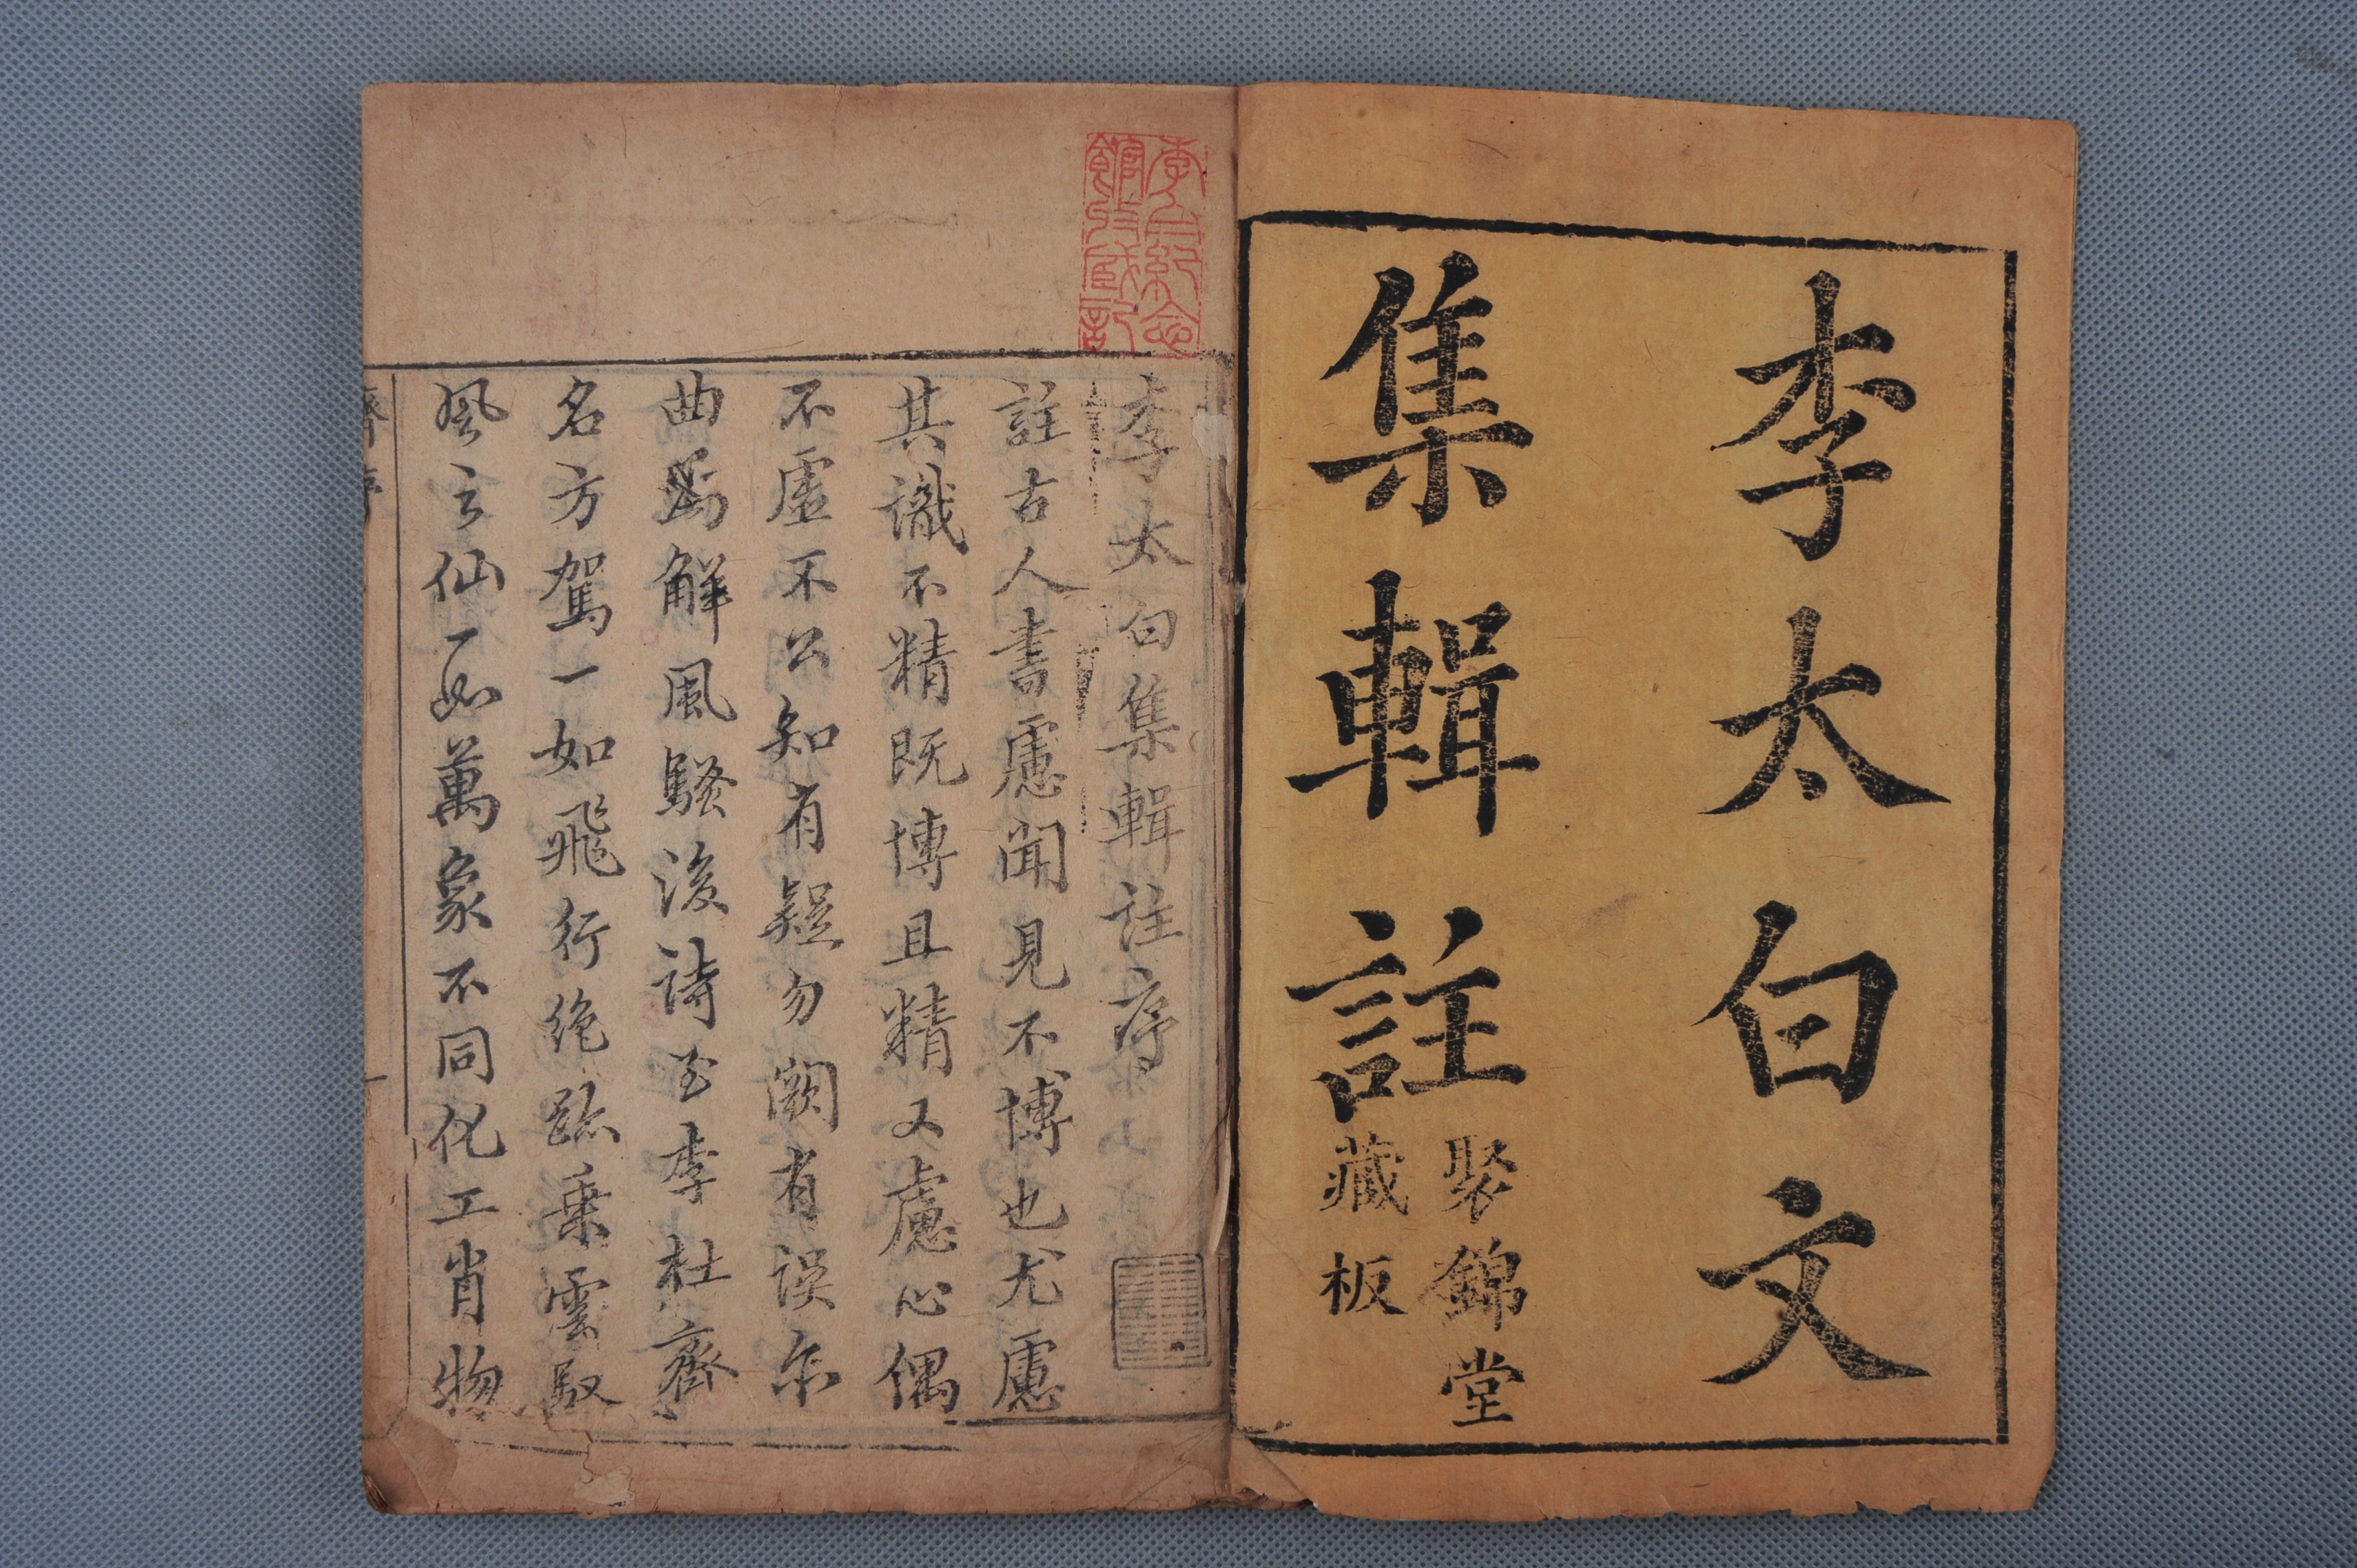 李太白文
集輯註
聚錦堂
藏板
李白紀念
李太白集輯註序
註古人書慮聞見不博也尤慮
其識不精既博且精又慮心偶
不虛不公知有疑勿闕有誤尔
曲爲解風騷後詩至李杜齊
名方駕一如飛行絕跡乘雲馭
風之仙一如萬象不同化工肖物
齊序
一